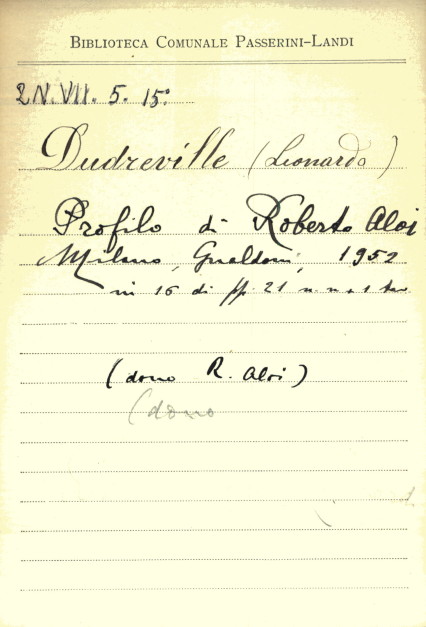 BIBLIOTECA COMUNALE PASSERINI-LANDI
2N.VII. 5. 15°
Dudreville (Leonardo)
Profilo di Roberto Aloi
Milano, Gualdoni, 1952
in 16 di pp. 21 n n + 1 tav
(dono R. Aloi)
(dono